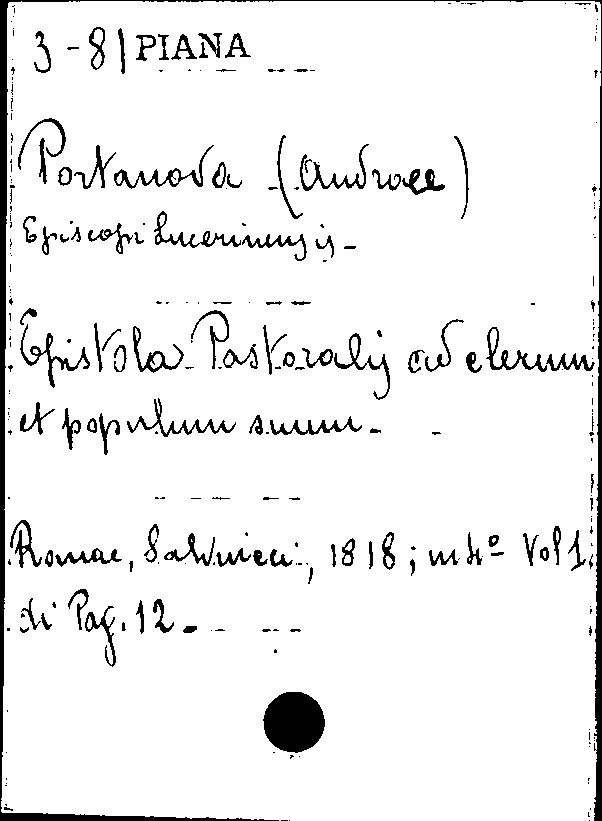 3-8| PIANA
Portanova (Andreae)
Episcopi Lucerinensis -
Epistola Pastoralis ad clerum
et populum suum -
Romae, Salviucci, 1818; in 4º Vol 1.
di Pag. 12 -